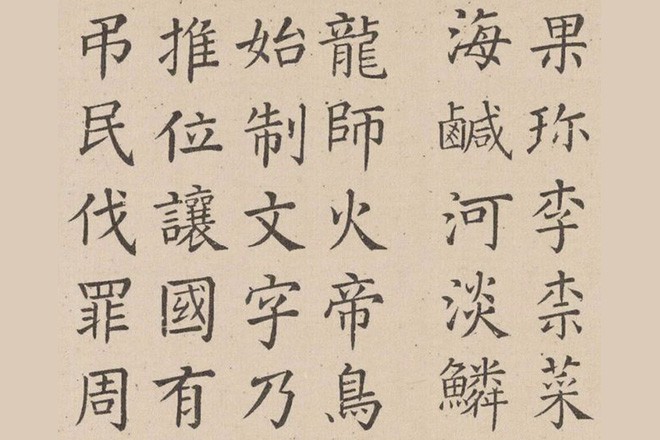 果珎李柰菜
海鹹河淡鱗
龍師火帝鳥
始制文字乃
推位讓國有
弔民伐罪周